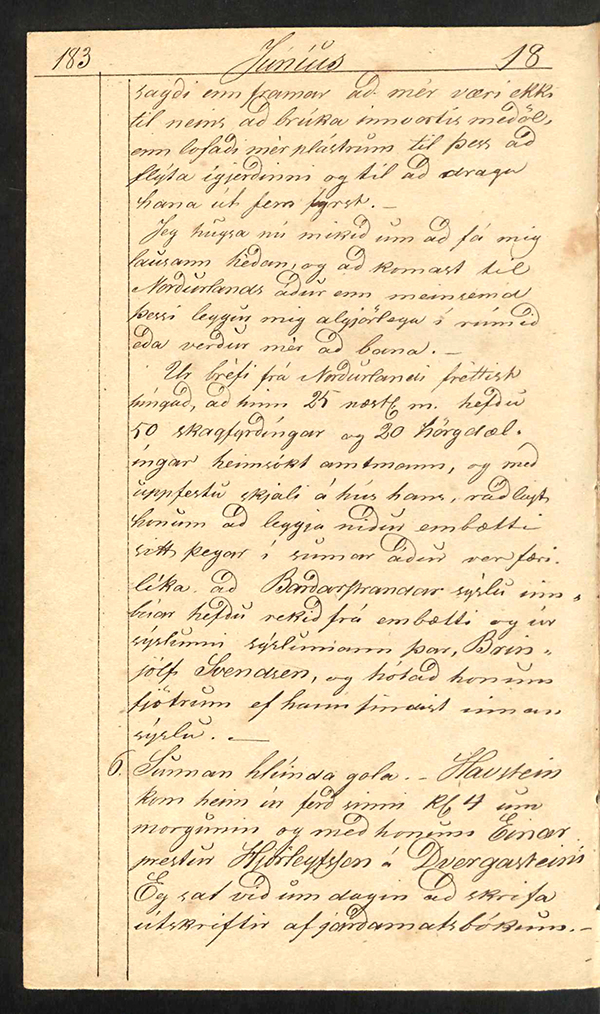 183 Júníus 18
sagdi enn framar ad mér væri ekki
til neins ad brúka innvortis medöl,
enn lofadi mér plástrum til þess ad
flýta ígjerdinni og til ad draga
hana út sem fyrst. –
Jeg hugsa nú mikid um ad fá mig
lausann hédan, og ad komast til
Nordurlands ádur enn meinsemd
þessi leggur mig algjörlega í rúmid
eda verdur mér ad bana. –
Ur bréfi frá Nordurlandi fréttist
hingad, ad hinn 25 næstl m. hefdu
50 skagfyrdíngar og 20 Hörgdæl-
íngar heimsókt amtmann, og med
uppfestu skjali á hús hans, rádlagt
honum ad leggja nidur embætti
sitt þegar í sumar ádur ver færi.
líka ad Bardarstrandar sýslu inn-
búar hefdu rekid frá embætti og úr
sýslunni sýslumann þar, Brin-
jólf Svendsen, og hótad honum
fjötrum ef hann findist innan
sýslu. –
6. Sunnan hlýinda gola. – Havstein
kom heim úr ferd sinni Kl 4 um
morgunin og med honum Einar
prestur Hjörleyfsson á Dvergasteini
Eg sat vid um dagin ad skrifa
útskriftir af jardamatsbókum. –